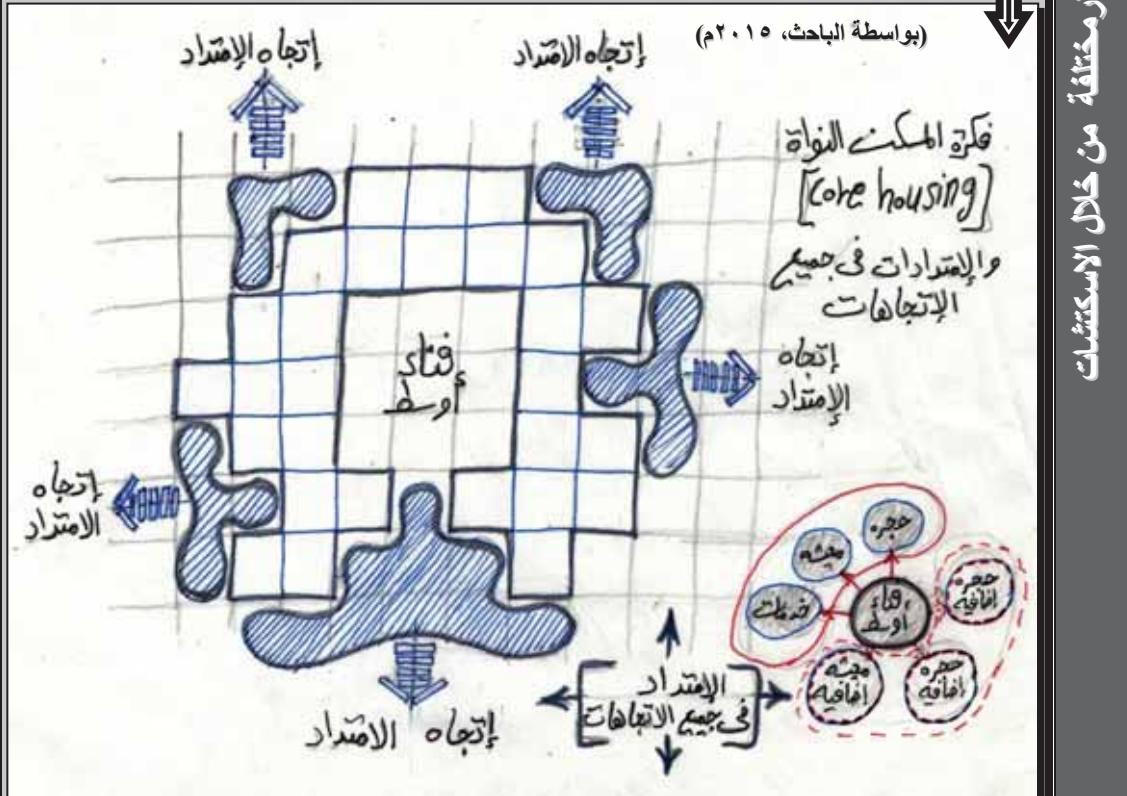 (بواسطة الباحث، ٢٠١٥م)
إتجاه الإمتداد
إتجاه الامتداد
فكرة المسكن النواة
[Core housing]
والإمتدادات فى جميع
الإتجاهات
إتجاه
الإمتداد
فناء
أوسط
إتجاه
الامتداد
إتجاه الامتداد
الإمتداد
فى جميع الاتجاهات
حجره
معيشه
خدمات
فناء
أوسط
حجره
إضافيه
حجره
إضافه
معيشه
إضافيه
مختلفة من خلال الاسكتشات